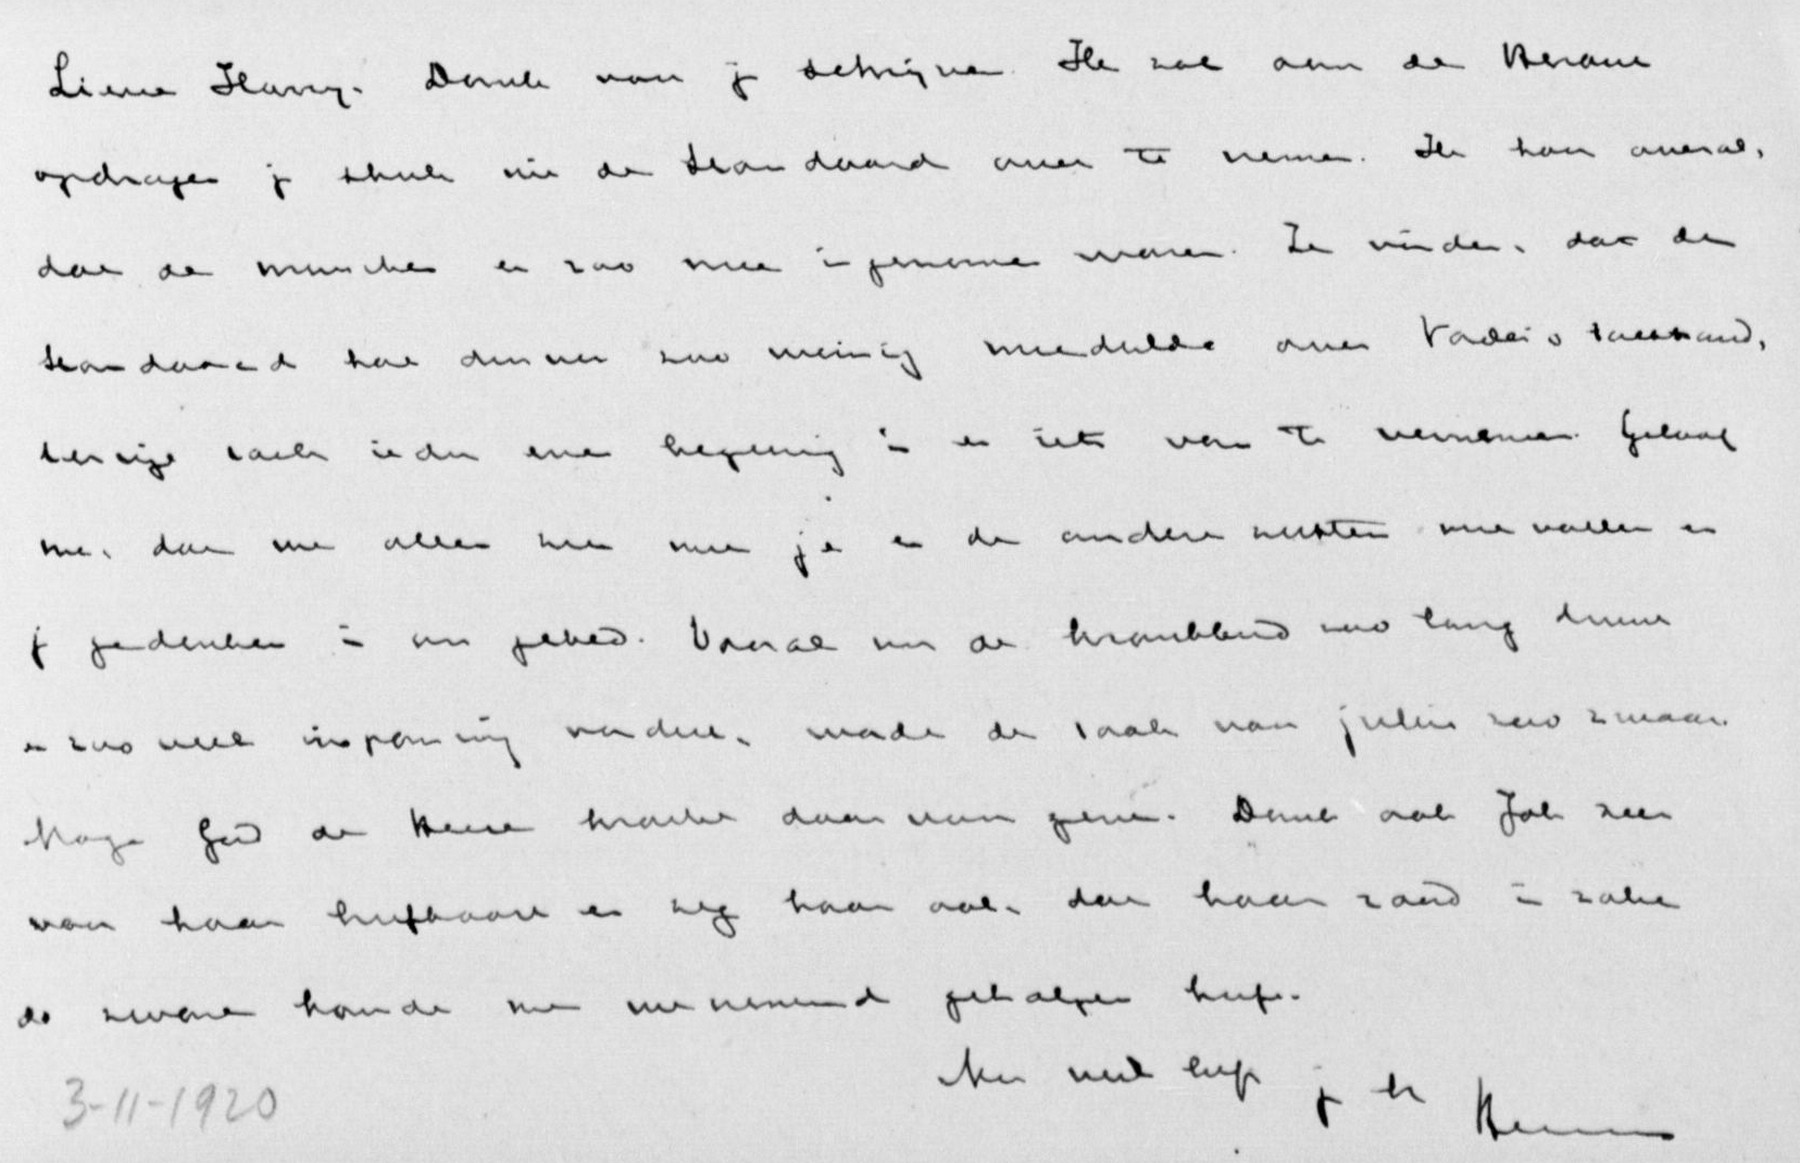 Lieve Harry. Dank voor je schrijven. Ik zal aan de Heraut
opdragen je stuk uit de Standaard over te nemen. Ik hoor overal,
dat de menschen er zoo mee ingenomen waren. Ze vinden, dat de
Standaard hoe zoo weinig meedeelde over Vaders toestand,
terwijl toch ieder eene er iets van te vernemen. Geloof
me, dat we allen zeer met je en de andere zusters meevoelen en
je gedenken in ons gebed. Vooral nu de krankheid zoo lang duurt
en zoo veel inspanning vordert, wordt de taak van jullie zoo zwaar.
Moge God de Heere kracht daarvoor geven. Dank ook Joh zeer
voor haar briefkaart en zeg haar ook, dat haar raad in zake
de handen me uitnemend geholpen heeft.
Met veel liefs je br
Herman
3-11-1920